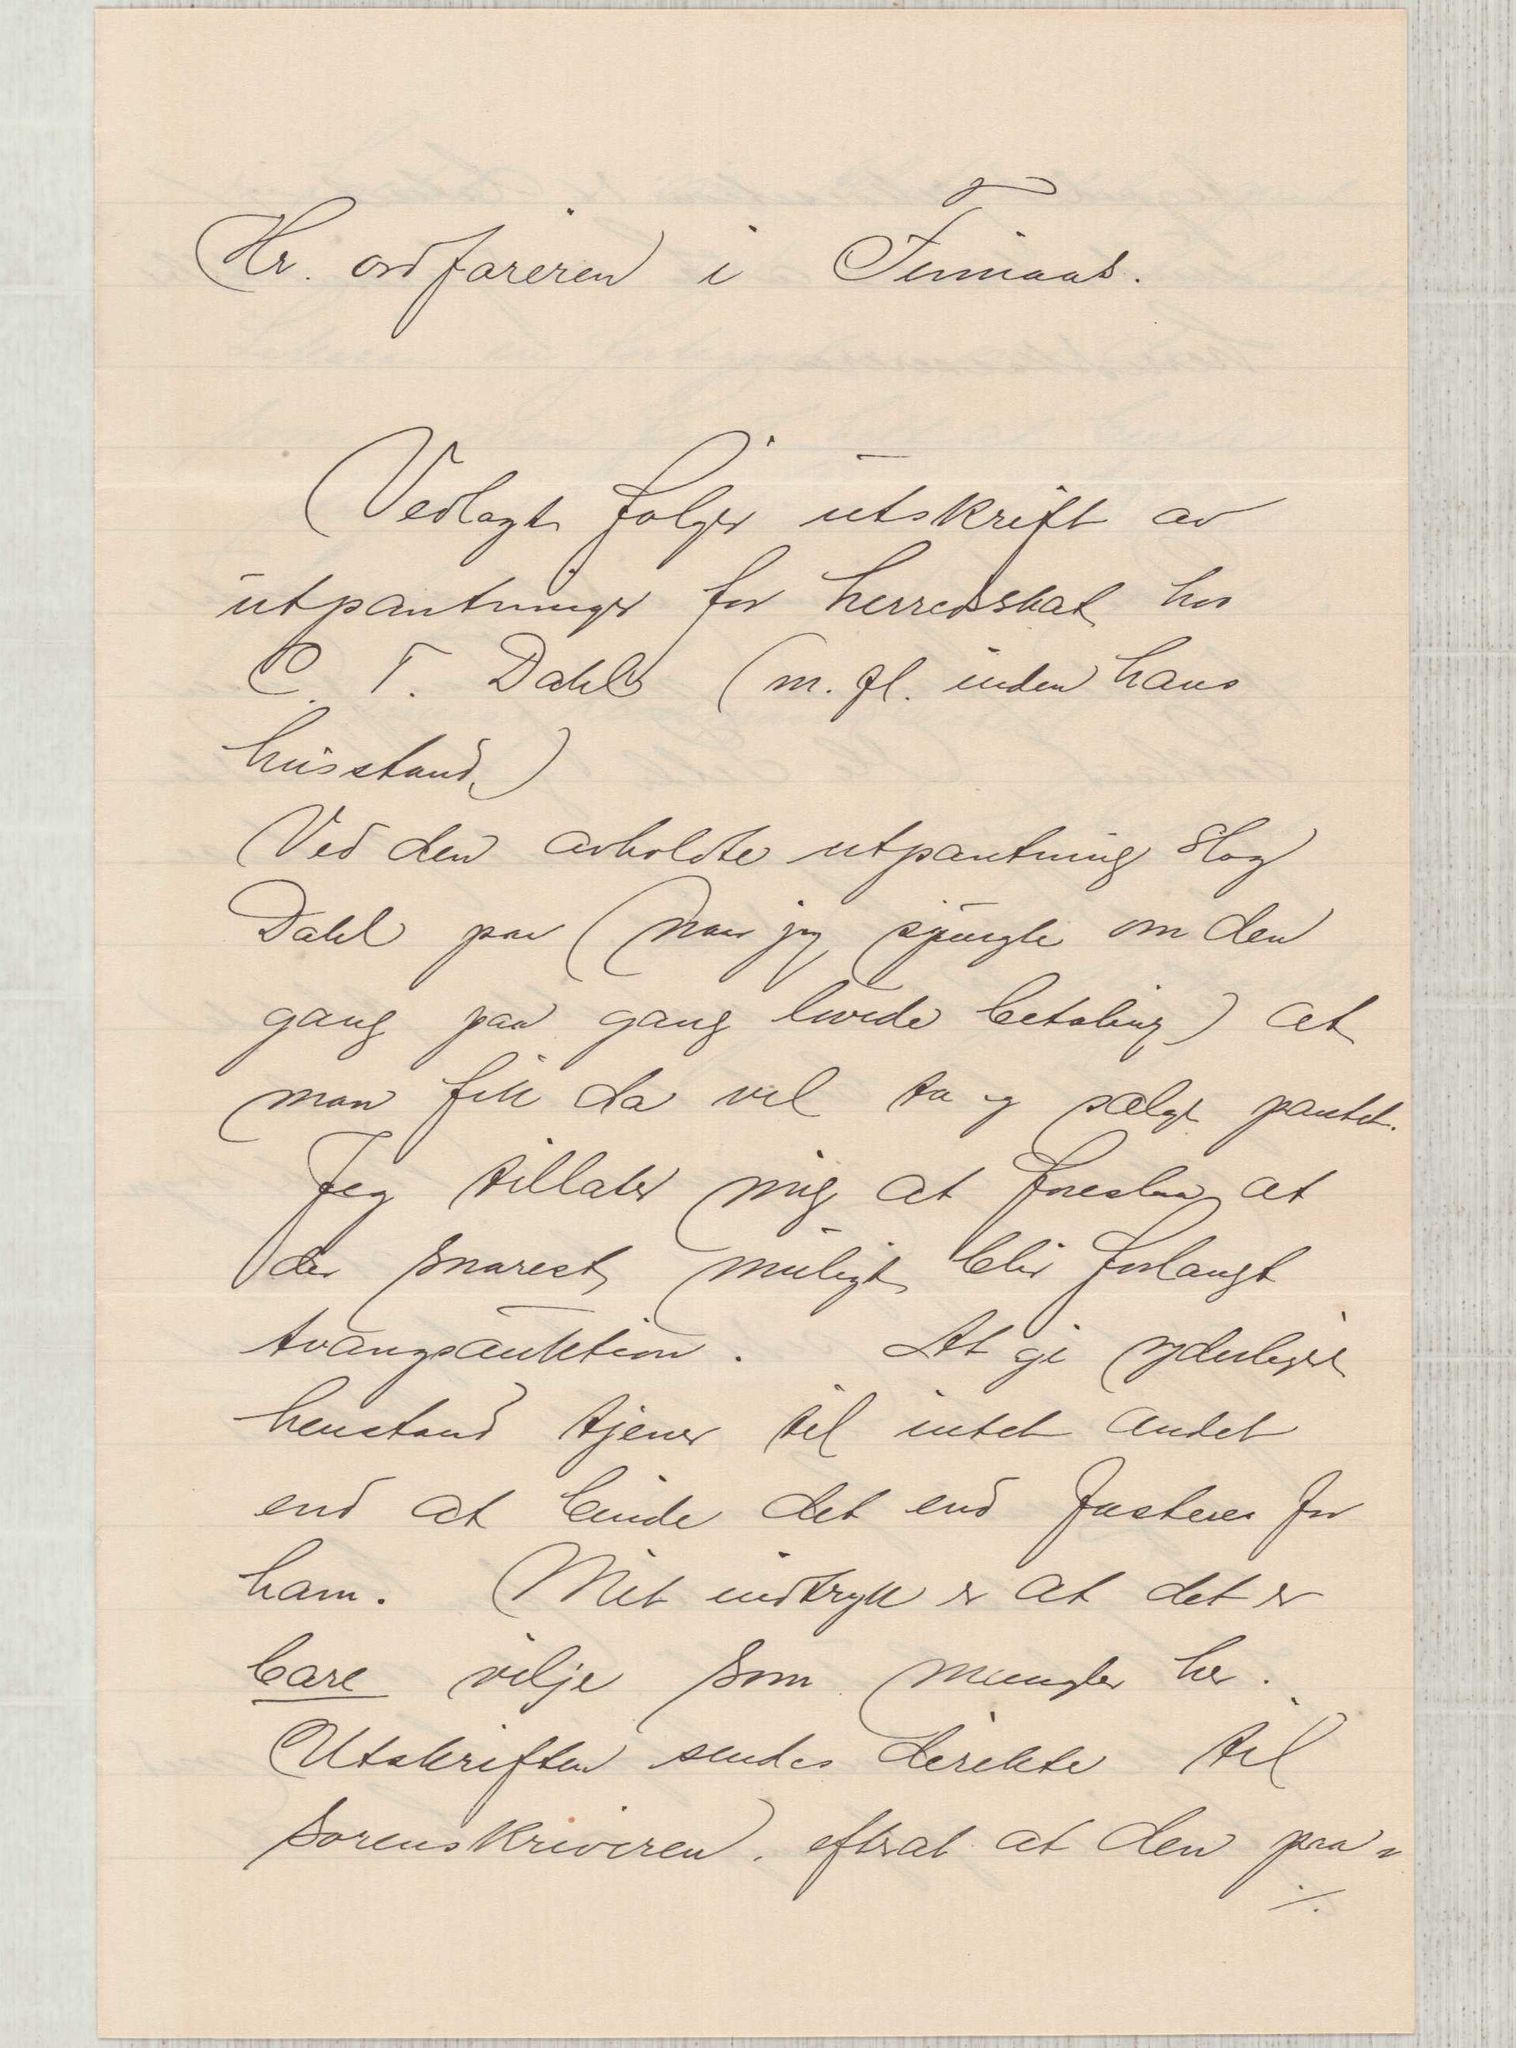 Hr. ordføreren i Finnaas.
Vedlagt følger utskrift av
utpantninger for herredsskat hos
C. T. Dahl (m. fl. inden hans
husstand)
Ved den avholdte utpantning slog
Dahl paa (naar jeg spurgte om den
gang paa gang lovede betaling) at
man fik da vel ta og sælge pantet.
Jeg tillater mig at foreslaa at
der snarest muligt blir forlangt
tvangsauktion. At gi yderligere
henstand tjener til intet andet
end at binde det end fastere for
ham. Mit indtryk er at det er
bare vilje som mangler her.
Utskriften sendes direkte til
sorenskriveren, efterat at den paa-
./.